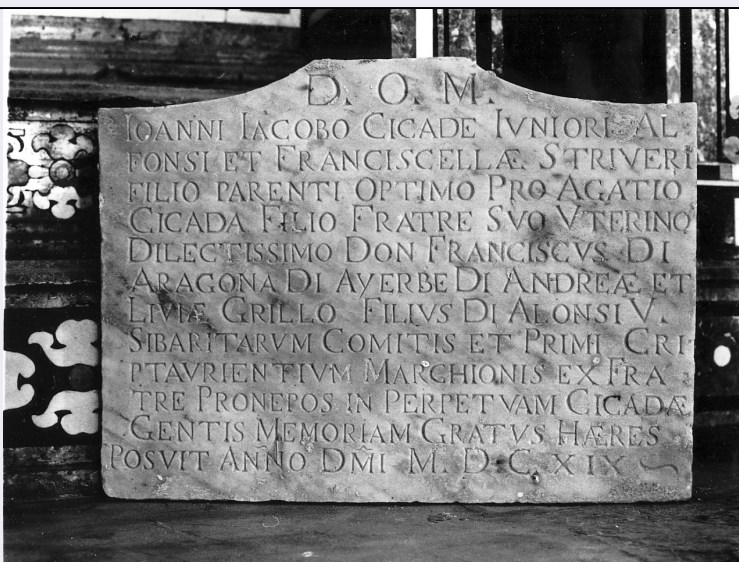 D. O. M.
IOANNI IACOBO CICADE IVNIORI AL
FONSI ET FRANCISCELLÆ STRIVERI
FILIO PARENTI OPTIMO PRO AGATIO
CICADA FILIO FRATRE SVO VTERINO
DILECTISSIMO DON FRANCISCVS DI
ARAGONA DI AYERBE DI ANDREÆ ET
LIVIÆ GRILLO FILIVS DI ALONSI V.
SIBARITARVM COMITIS ET PRIMI CRI
PTAVRIENTIVM MARCHIONIS EX FRA
TRE PRONEPOS IN PERPETVAM CICADÆ
GENTIS MEMORIAM GRATVS HÆRES
POSVIT ANÑO DM̃I M. D. C. XIX